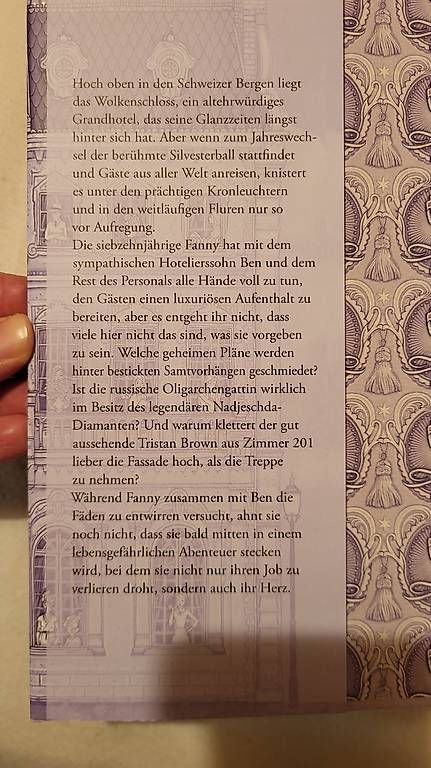 Hoch oben in den Schweizer Bergen liegt
das Wolkenschloss, ein altehrwürdiges
Grandhotel, das seine Glanzzeiten längst
hinter sich hat. Aber wenn zum Jahreswech-
sel der berühmte Silvesterball stattfindet
und Gäste aus aller Welt anreisen, knistert
es unter den prächtigen Kronleuchtern
und in den weitläufigen Fluren nur so
vor Aufregung.
Die siebzehnjährige Fanny hat mit dem
sympathischen Hotelierssohn Ben und dem
Rest des Personals alle Hände voll zu tun,
den Gästen einen luxuriösen Aufenthalt zu
bereiten, aber es entgeht ihr nicht, dass
viele hier nicht das sind, was sie vorgeben
zu sein. Welche geheimen Pläne werden
hinter bestickten Samtvorhängen geschmiedet?
Ist die russische Oligarchengattin wirklich
im Besitz des legendären Nadjeschda-
Diamanten? Und warum klettert der gut
aussehende Tristan Brown aus Zimmer 201
lieber die Fassade hoch, als die Treppe
zu nehmen?
Während Fanny zusammen mit Ben die
Fäden zu entwirren versucht, ahnt sie
noch nicht, dass sie bald mitten in einem
lebensgefährlichen Abenteuer stecken
wird, bei dem sie nicht nur ihren Job zu
verlieren droht, sondern auch ihr Herz.